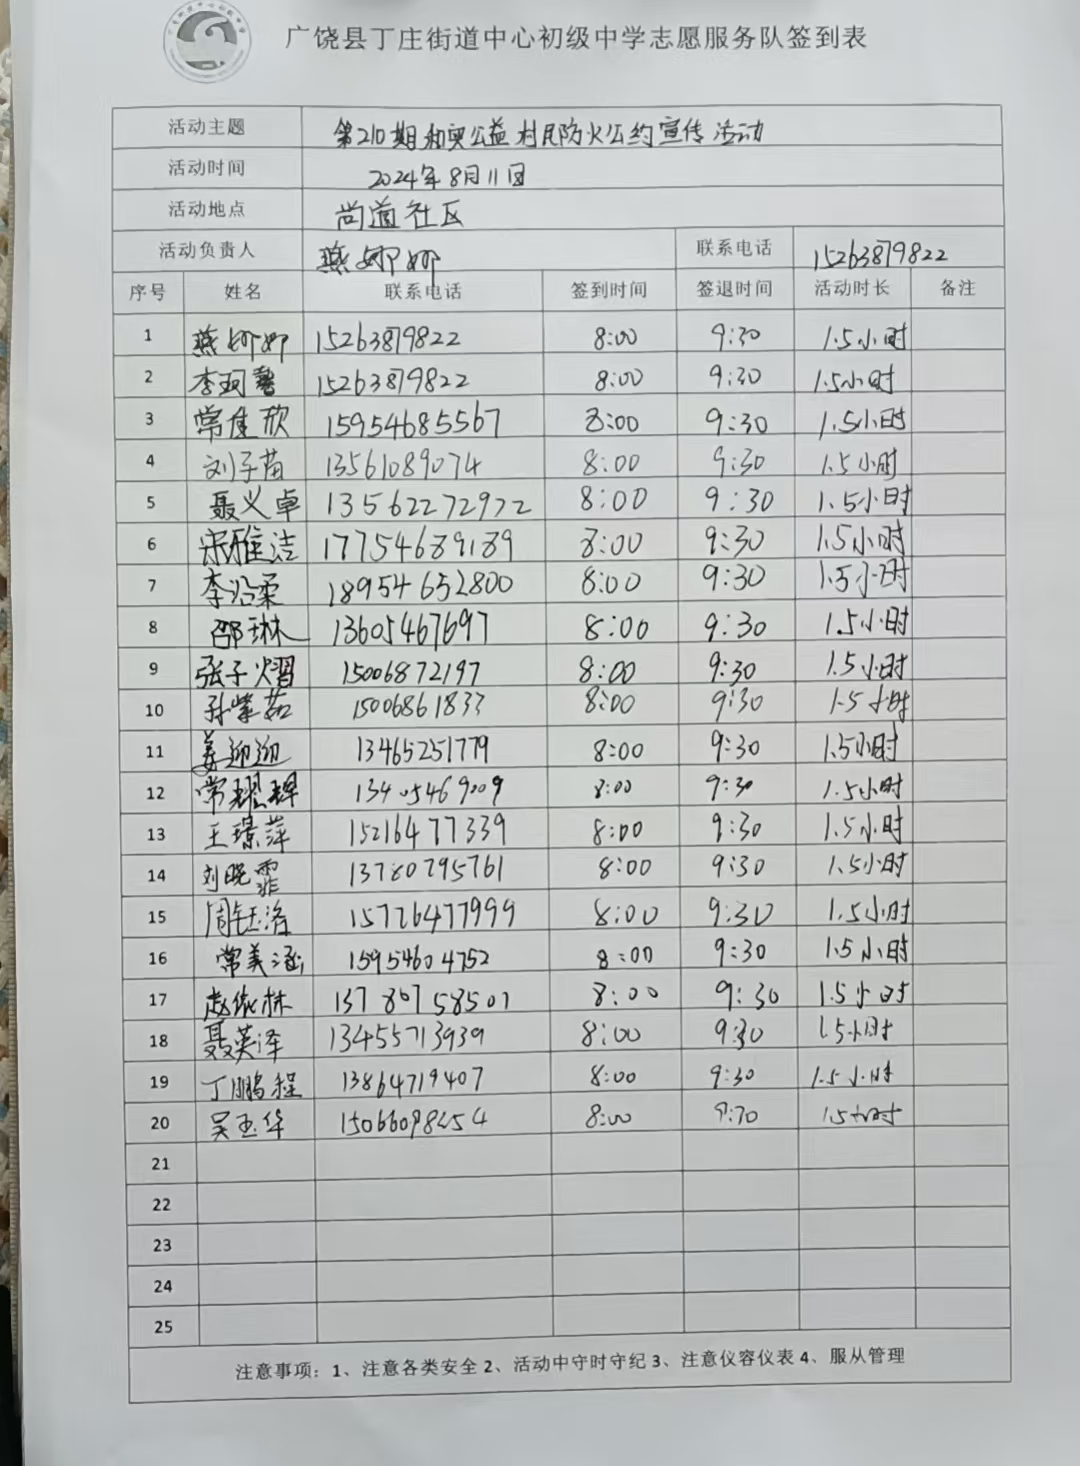 广饶县丁庄街道中心初级中学志愿服务队签到表
活动主题 第210期和奥公益村民防火公约宣传活动
活动时间 2024年8月11日
活动地点 尚道社区
活动负责人 燕娜娜 联系电话 15263879822
序号 姓名 联系电话 签到时间 签退时间 活动时长 备注
1 燕娜娜 15263879822 8:00 9:30 1.5小时
2 李珂馨 15263879822 8:00 9:30 1.5小时
3 常佳欣 15954685567 8:00 9:30 1.5小时
4 刘子苗 13561089074 8:00 9:30 1.5小时
5 聂义卓 13562272922 8:00 9:30 1.5小时
6 宋雅洁 17754689189 8:00 9:30 1.5小时
7 李沿柔 18954652800 8:00 9:30 1.5小时
8 邵琳 13605467697 8:00 9:30 1.5小时
9 张子熠 15006872197 8:00 9:30 1.5小时
10 孙紫茹 15006861833 8:00 9:30 1.5小时
11 姜迎迎 13465251779 8:00 9:30 1.5小时
12 常耀辉 13405469009 8:00 9:30 1.5小时
13 王璟萍 15216477339 8:00 9:30 1.5小时
14 刘晓霏 13780795761 8:00 9:30 1.5小时
15 周钰洛 15726477999 8:00 9:30 1.5小时
16 常美涵 15954604752 8:00 9:30 1.5小时
17 赵依林 13780758501 8:00 9:30 1.5小时
18 聂英泽 13455713939 8:00 9:30 1.5小时
19 丁鹏程 13864719407 8:00 9:30 1.5小时
20 吴玉华 8:00 9:30 1.5小时
21
22
23
24
25
注意事项：1、注意各类安全 2、活动中守时守纪 3、注意仪容仪表 4、服从管理